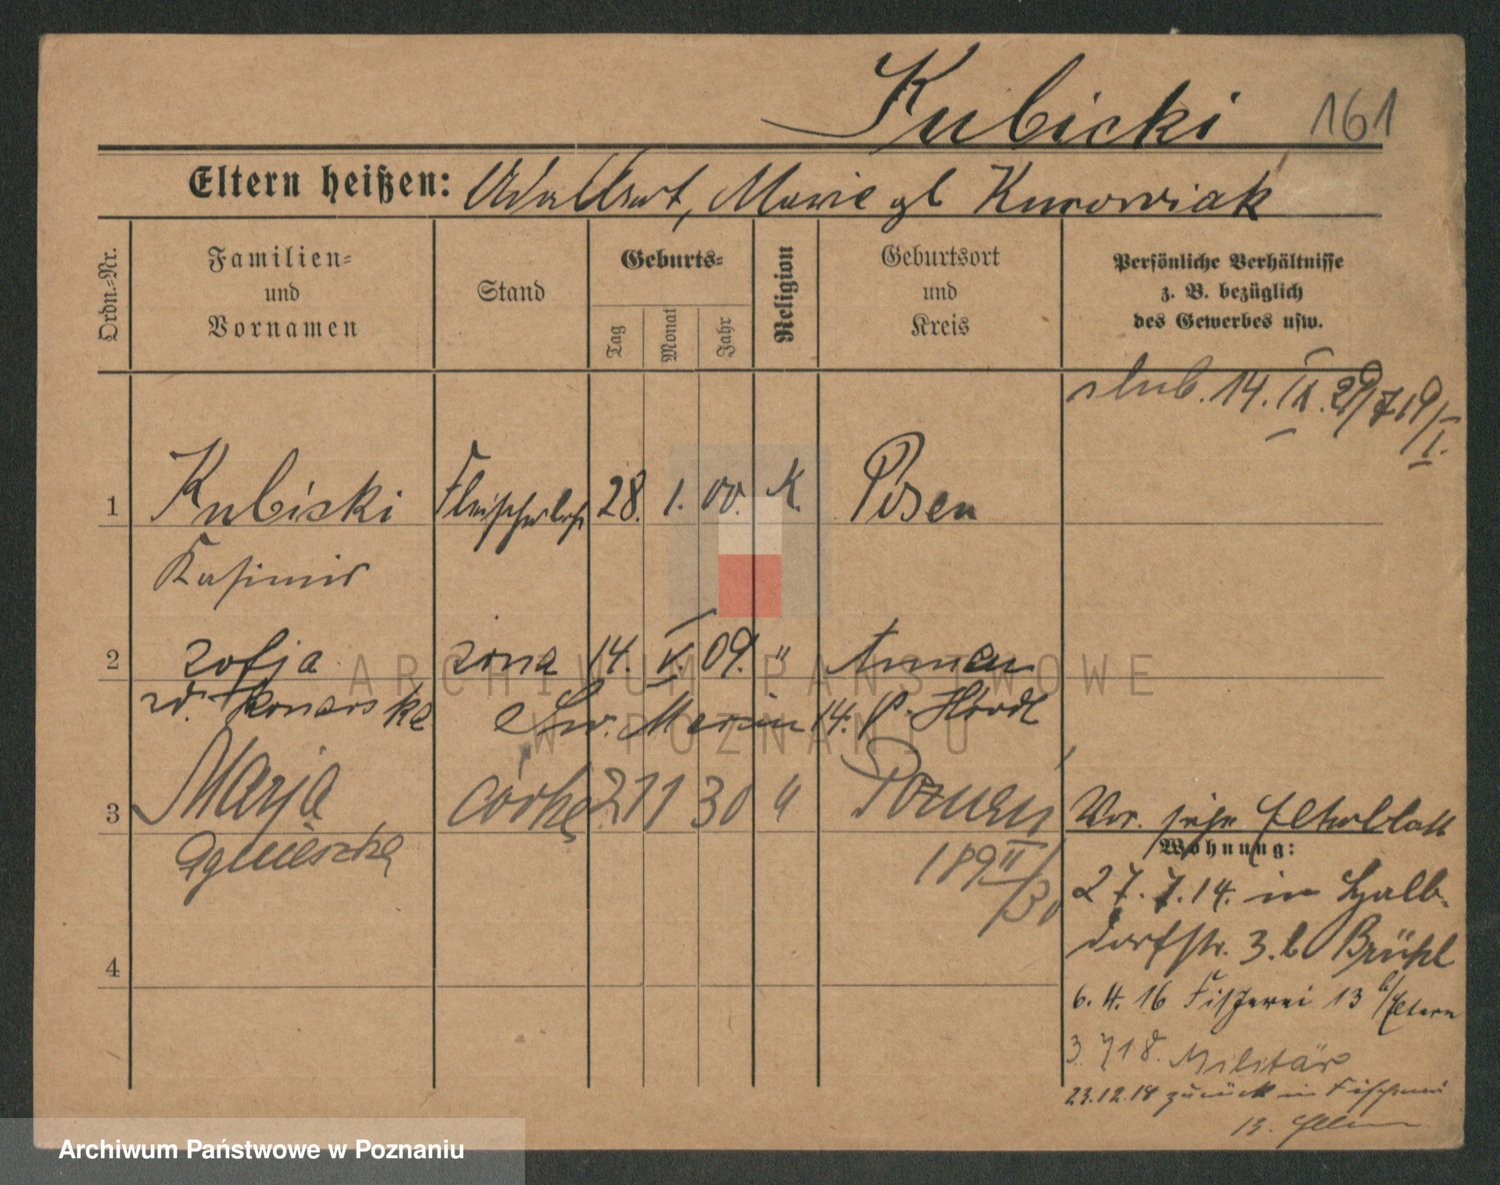 Kubicki 161
Eltern heißen: Adalbert, Marie gb Kurowiak
Ordn.=Nr.
Familien=
und
Vornamen
Stand
Geburts=
Tag
Monat
Jahr
Religion
Geburtsort
und
Kreis
Persönliche Verhältnisse
z. B. bezüglich
des Gewerbes usw.
ślub. 14. IX. 29
1 Kubicki Fleischerlehr 28. 1. 00. K. Posen
Kasimir
2 Zofja żona 14. V. 09. " Annen
zd. Konarska Św. Marcin 14. p. Hördt
3 Marja córka 21 1 30 " Poznań
Agnieszka
189 II/30
Vor. siehe Elternblatt
Wohnung:
27. 7. 14. in Halb-
dorfstr. 3. b Brühl
4
6. 4. 16 Fischerei 13 b/Eltern
3. 7 18. Militär
23.12.18 zurück in Fischerei
13. Eltern
ARCHIWUM PAŃSTWOWE
W POZNANIU
Archiwum Państwowe w Poznaniu